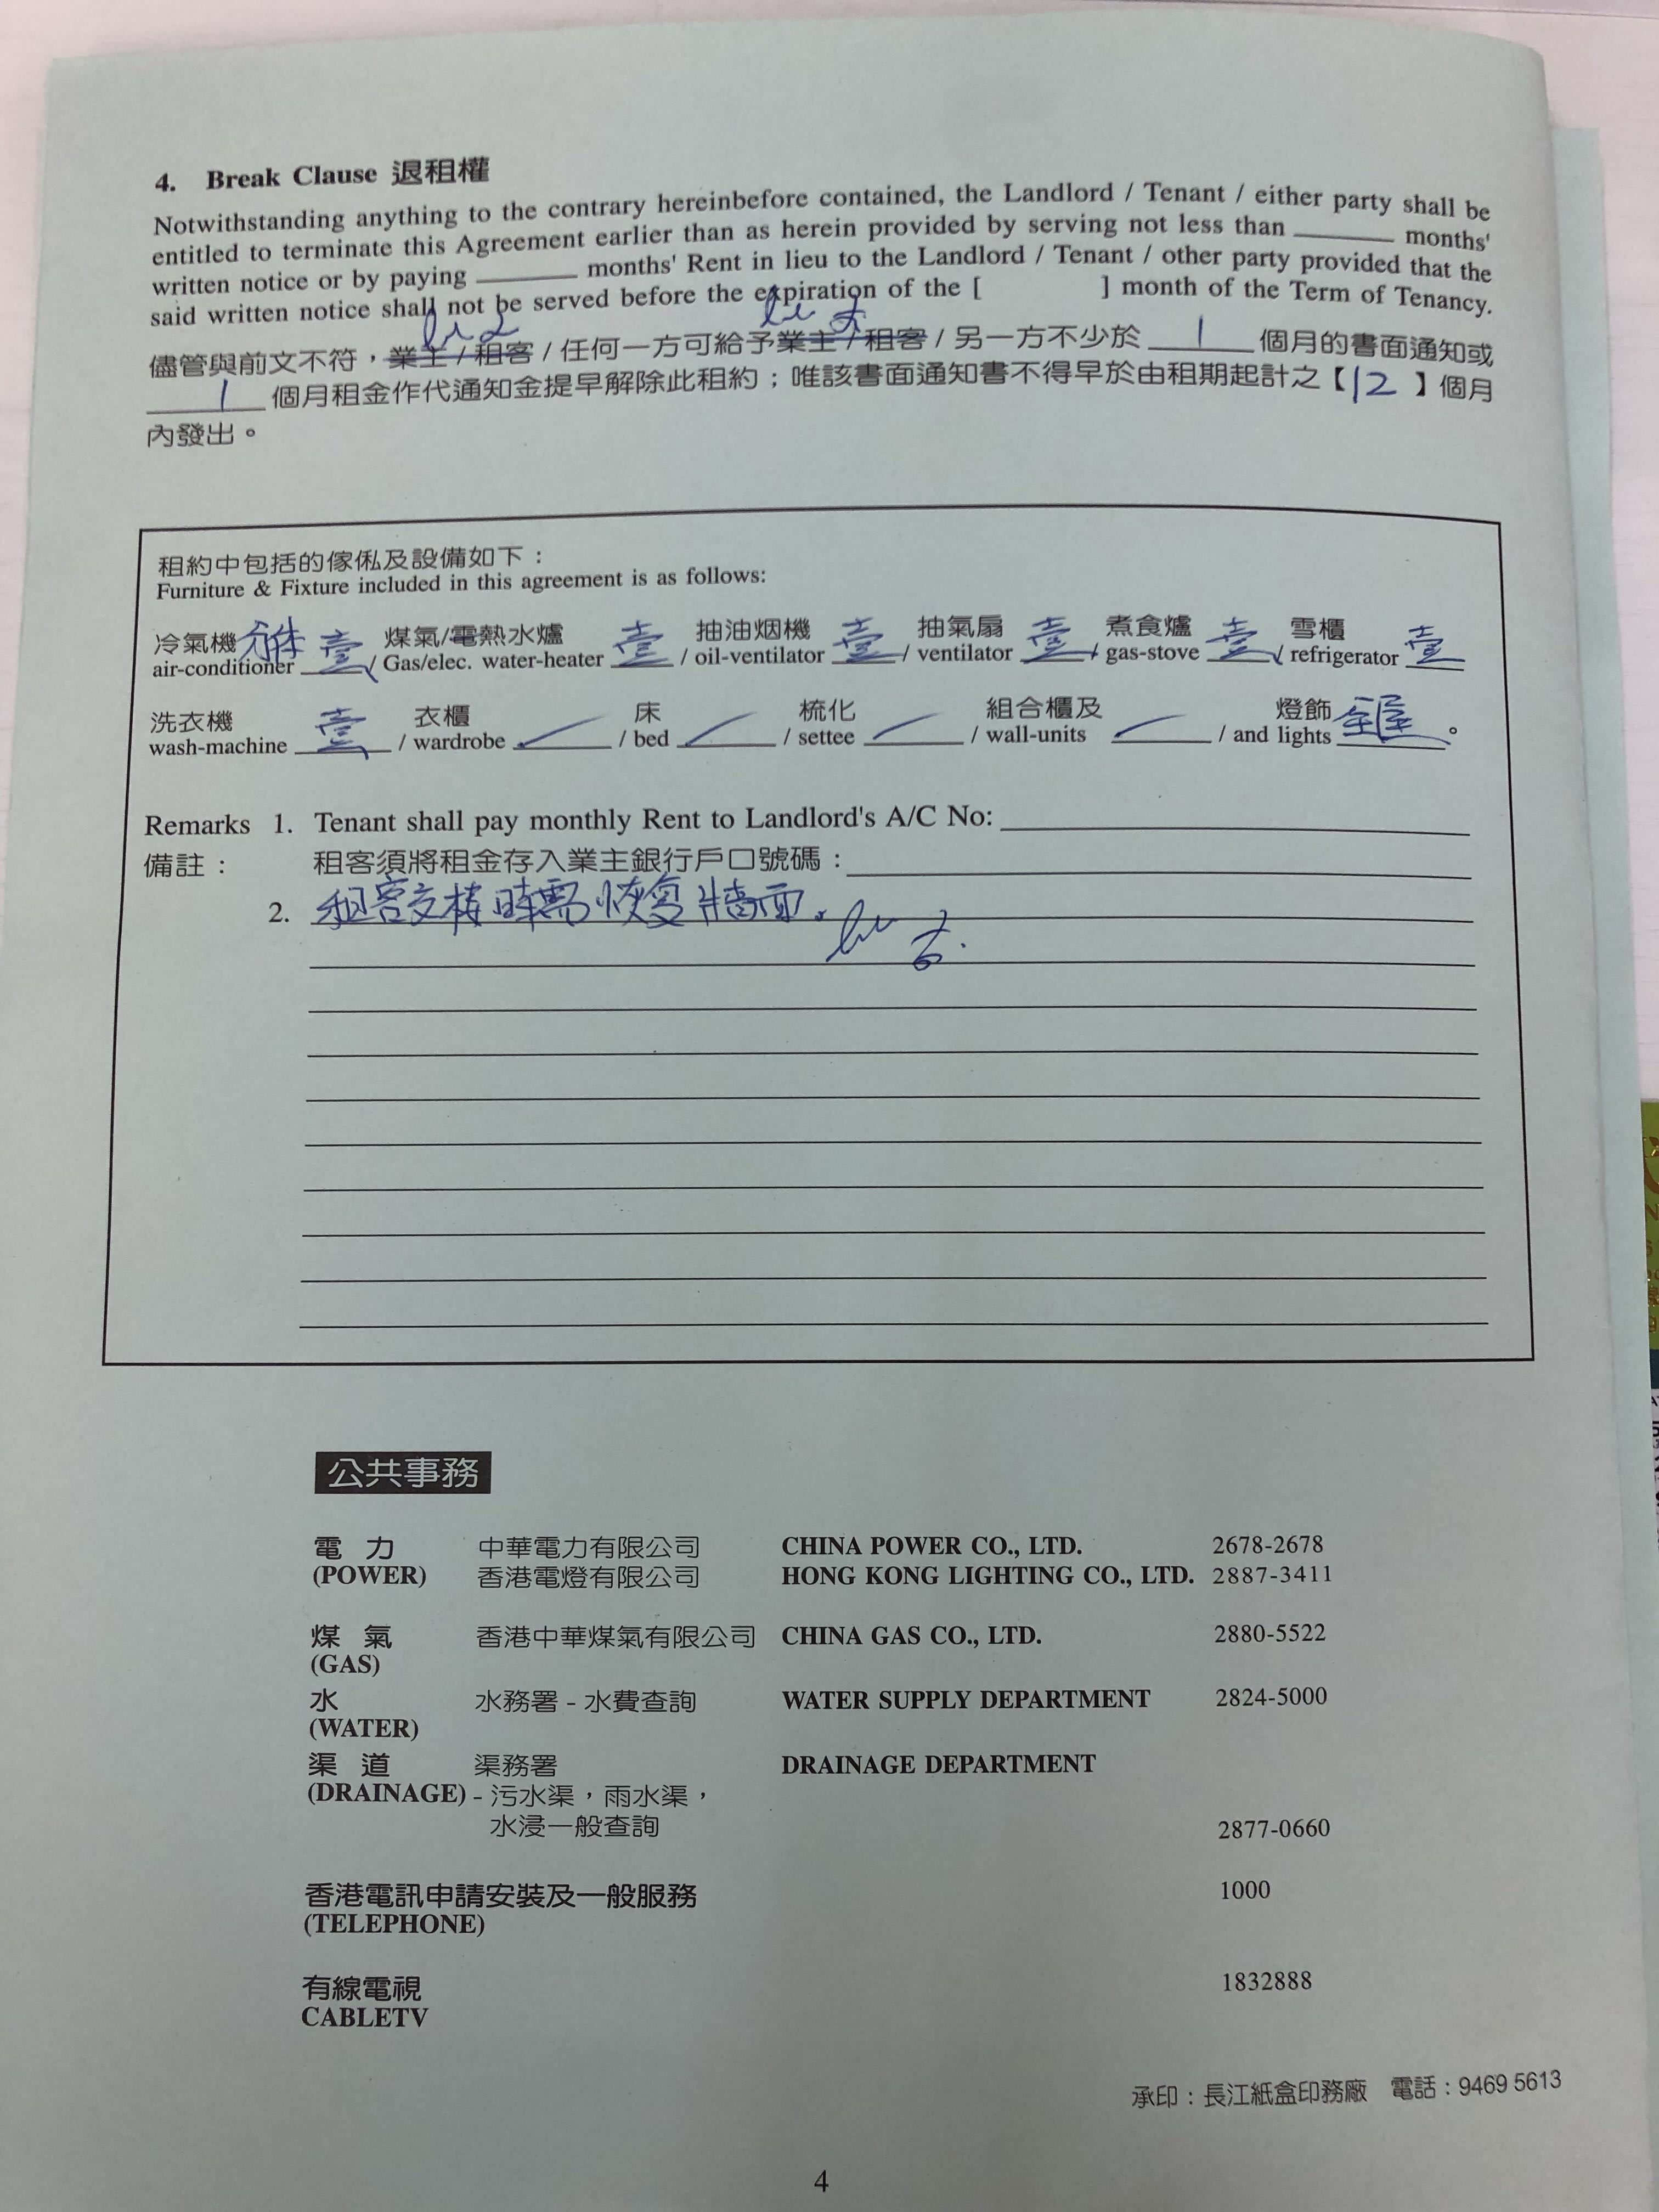 4. Break Clause 退租權
Notwithstanding anything to the contrary hereinbefore contained, the Landlord / Tenant / either party shall be
entitled to terminate this Agreement earlier than as herein provided by serving not less than ________ months'
written notice or by paying ________ months' Rent in lieu to the Landlord / Tenant / other party provided that the
said written notice shall not be served before the expiration of the [ ] month of the Term of Tenancy.
儘管與前文不符，業主/租客/任何一方可給予業主/租客/另一方不少於 1 個月的書面通知或
1 個月租金作代通知金提早解除此租約；唯該書面通知書不得早於由租期起計之【12】個月
內發出。
租約中包括的傢俬及設備如下：
Furniture & Fixture included in this agreement is as follows:
冷氣機 壹 煤氣/電熱水爐 壹 抽油烟機 壹 抽氣扇 壹 煮食爐 壹 雪櫃 壹
air-conditioner / Gas/elec. water-heater / oil-ventilator / ventilator / gas-stove / refrigerator
洗衣機 壹 衣櫃 床 梳化 組合櫃及 燈飾 全屋。
wash-machine / wardrobe / bed / settee / wall-units / and lights
Remarks 1. Tenant shall pay monthly Rent to Landlord's A/C No:
備註： 租客須將租金存入業主銀行戶口號碼：
2. 租客交樓時需恢复牆面.
公共事務
電 力 中華電力有限公司 CHINA POWER CO., LTD. 2678-2678
(POWER) 香港電燈有限公司 HONG KONG LIGHTING CO., LTD. 2887-3411
煤 氣 香港中華煤氣有限公司 CHINA GAS CO., LTD. 2880-5522
(GAS)
水 水務署 - 水費查詢 WATER SUPPLY DEPARTMENT 2824-5000
(WATER)
渠 道 渠務署 DRAINAGE DEPARTMENT
(DRAINAGE) - 污水渠，雨水渠，
水浸一般查詢 2877-0660
香港電訊申請安裝及一般服務 1000
(TELEPHONE)
有線電視 1832888
CABLETV
承印：長江紙盒印務廠 電話：9469 5613
4